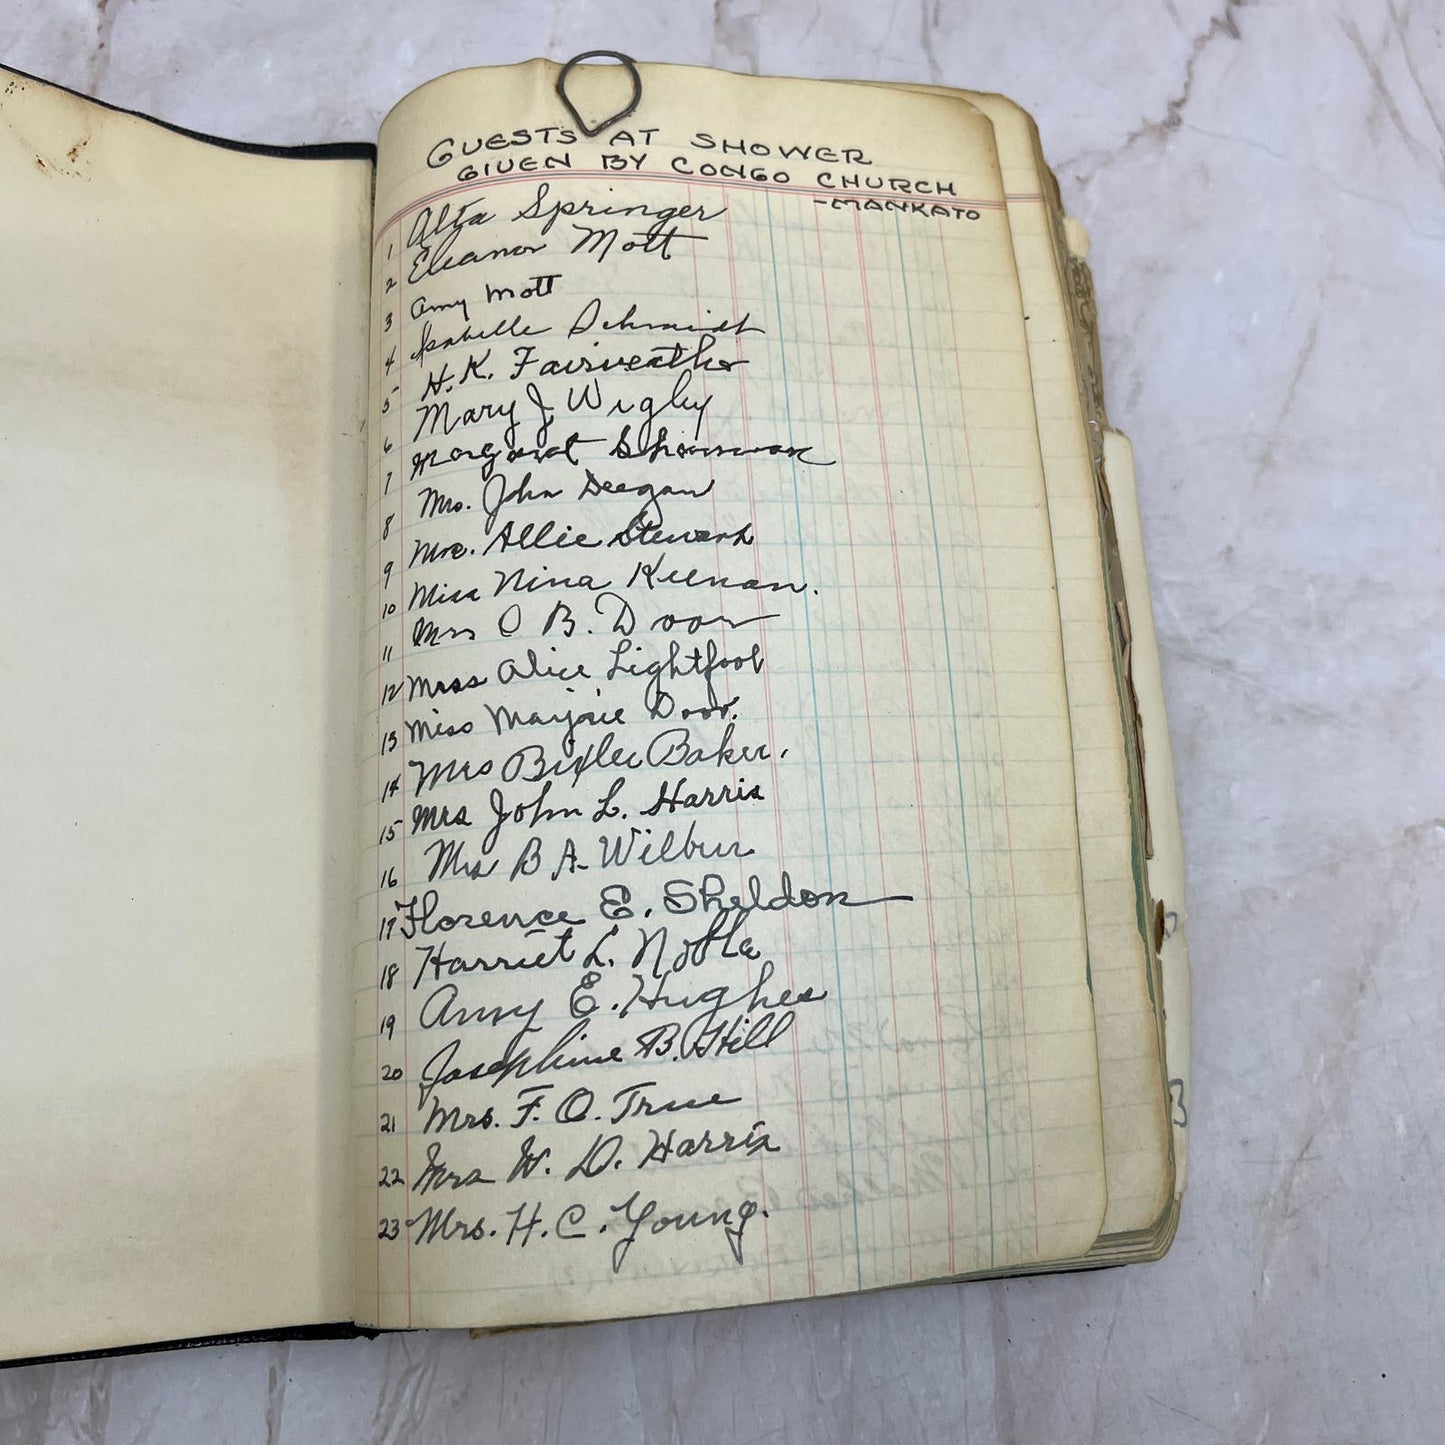 GUESTS AT SHOWER
GIVEN BY CONGO CHURCH
-MANKATO
1 Alta Springer
2 Eleanor Mott
3 Amy Mott
4 Isabelle Schmidt
5 H. K. Fairweather
6 Mary J Wigley
7 Margaret
8 Mrs. John Deegan
9 Mrs. Allie Stewart
10 Miss Nina Keenan.
11 Mrs O B. Doow
12 Miss Alice Lightfoot
13 Miss Marjorie Doov.
14 Mrs Bixler Baker.
15 Mrs John L. Harris
16 Mrs B A. Wilbur
17 Florence E. Sheldon
18 Harriet L. Noble
19 Amy E. Hughes
20 Josephine B. Hill
21 Mrs. F. O. True
22 Mrs W. D. Harris
23 Mrs. H. C. Young.
3